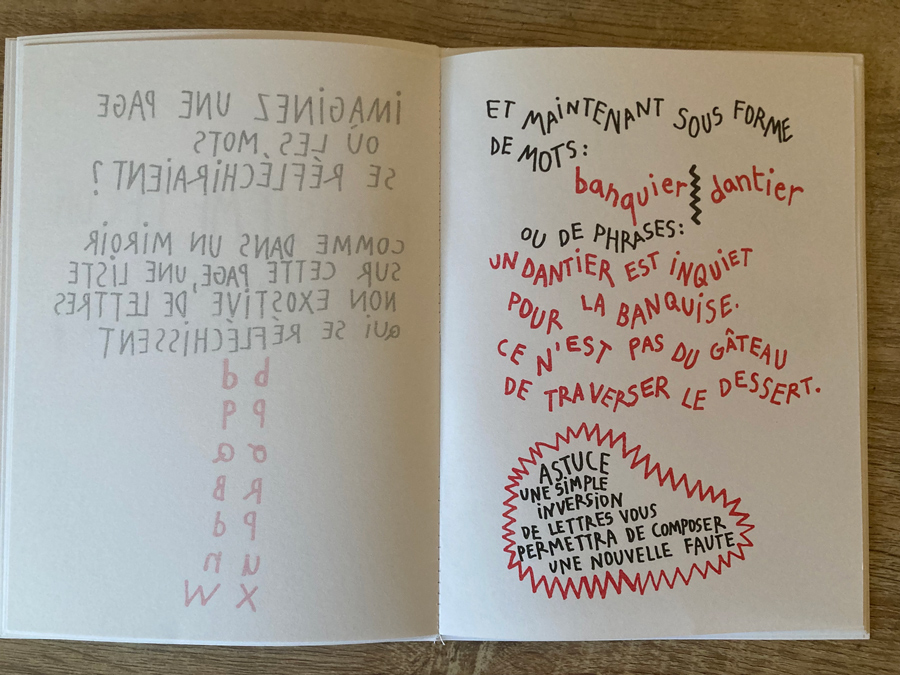 IMAGINEZ UNE PAGE
OÙ LES MOTS
SE RÉFLÉCHIRAIENT ?
COMME DANS UN MIROIR
SUR CETTE PAGE, UNE LISTE
NON EXOSTIVE DE LETTRES
QUI SE RÉFLÉCHISSENT
R B
u n
X W
ET MAINTENANT SOUS FORME
DE MOTS :
banquier dantier
OU DE PHRASES :
UN DANTIER EST INQUIET
POUR LA BANQUISE.
CE N'EST PAS DU GÂTEAU
DE TRAVERSER LE DESSERT.
ASTUCE
UNE SIMPLE
INVERSION
DE LETTRES VOUS
PERMETTRA DE COMPOSER
UNE NOUVELLE FAUTE